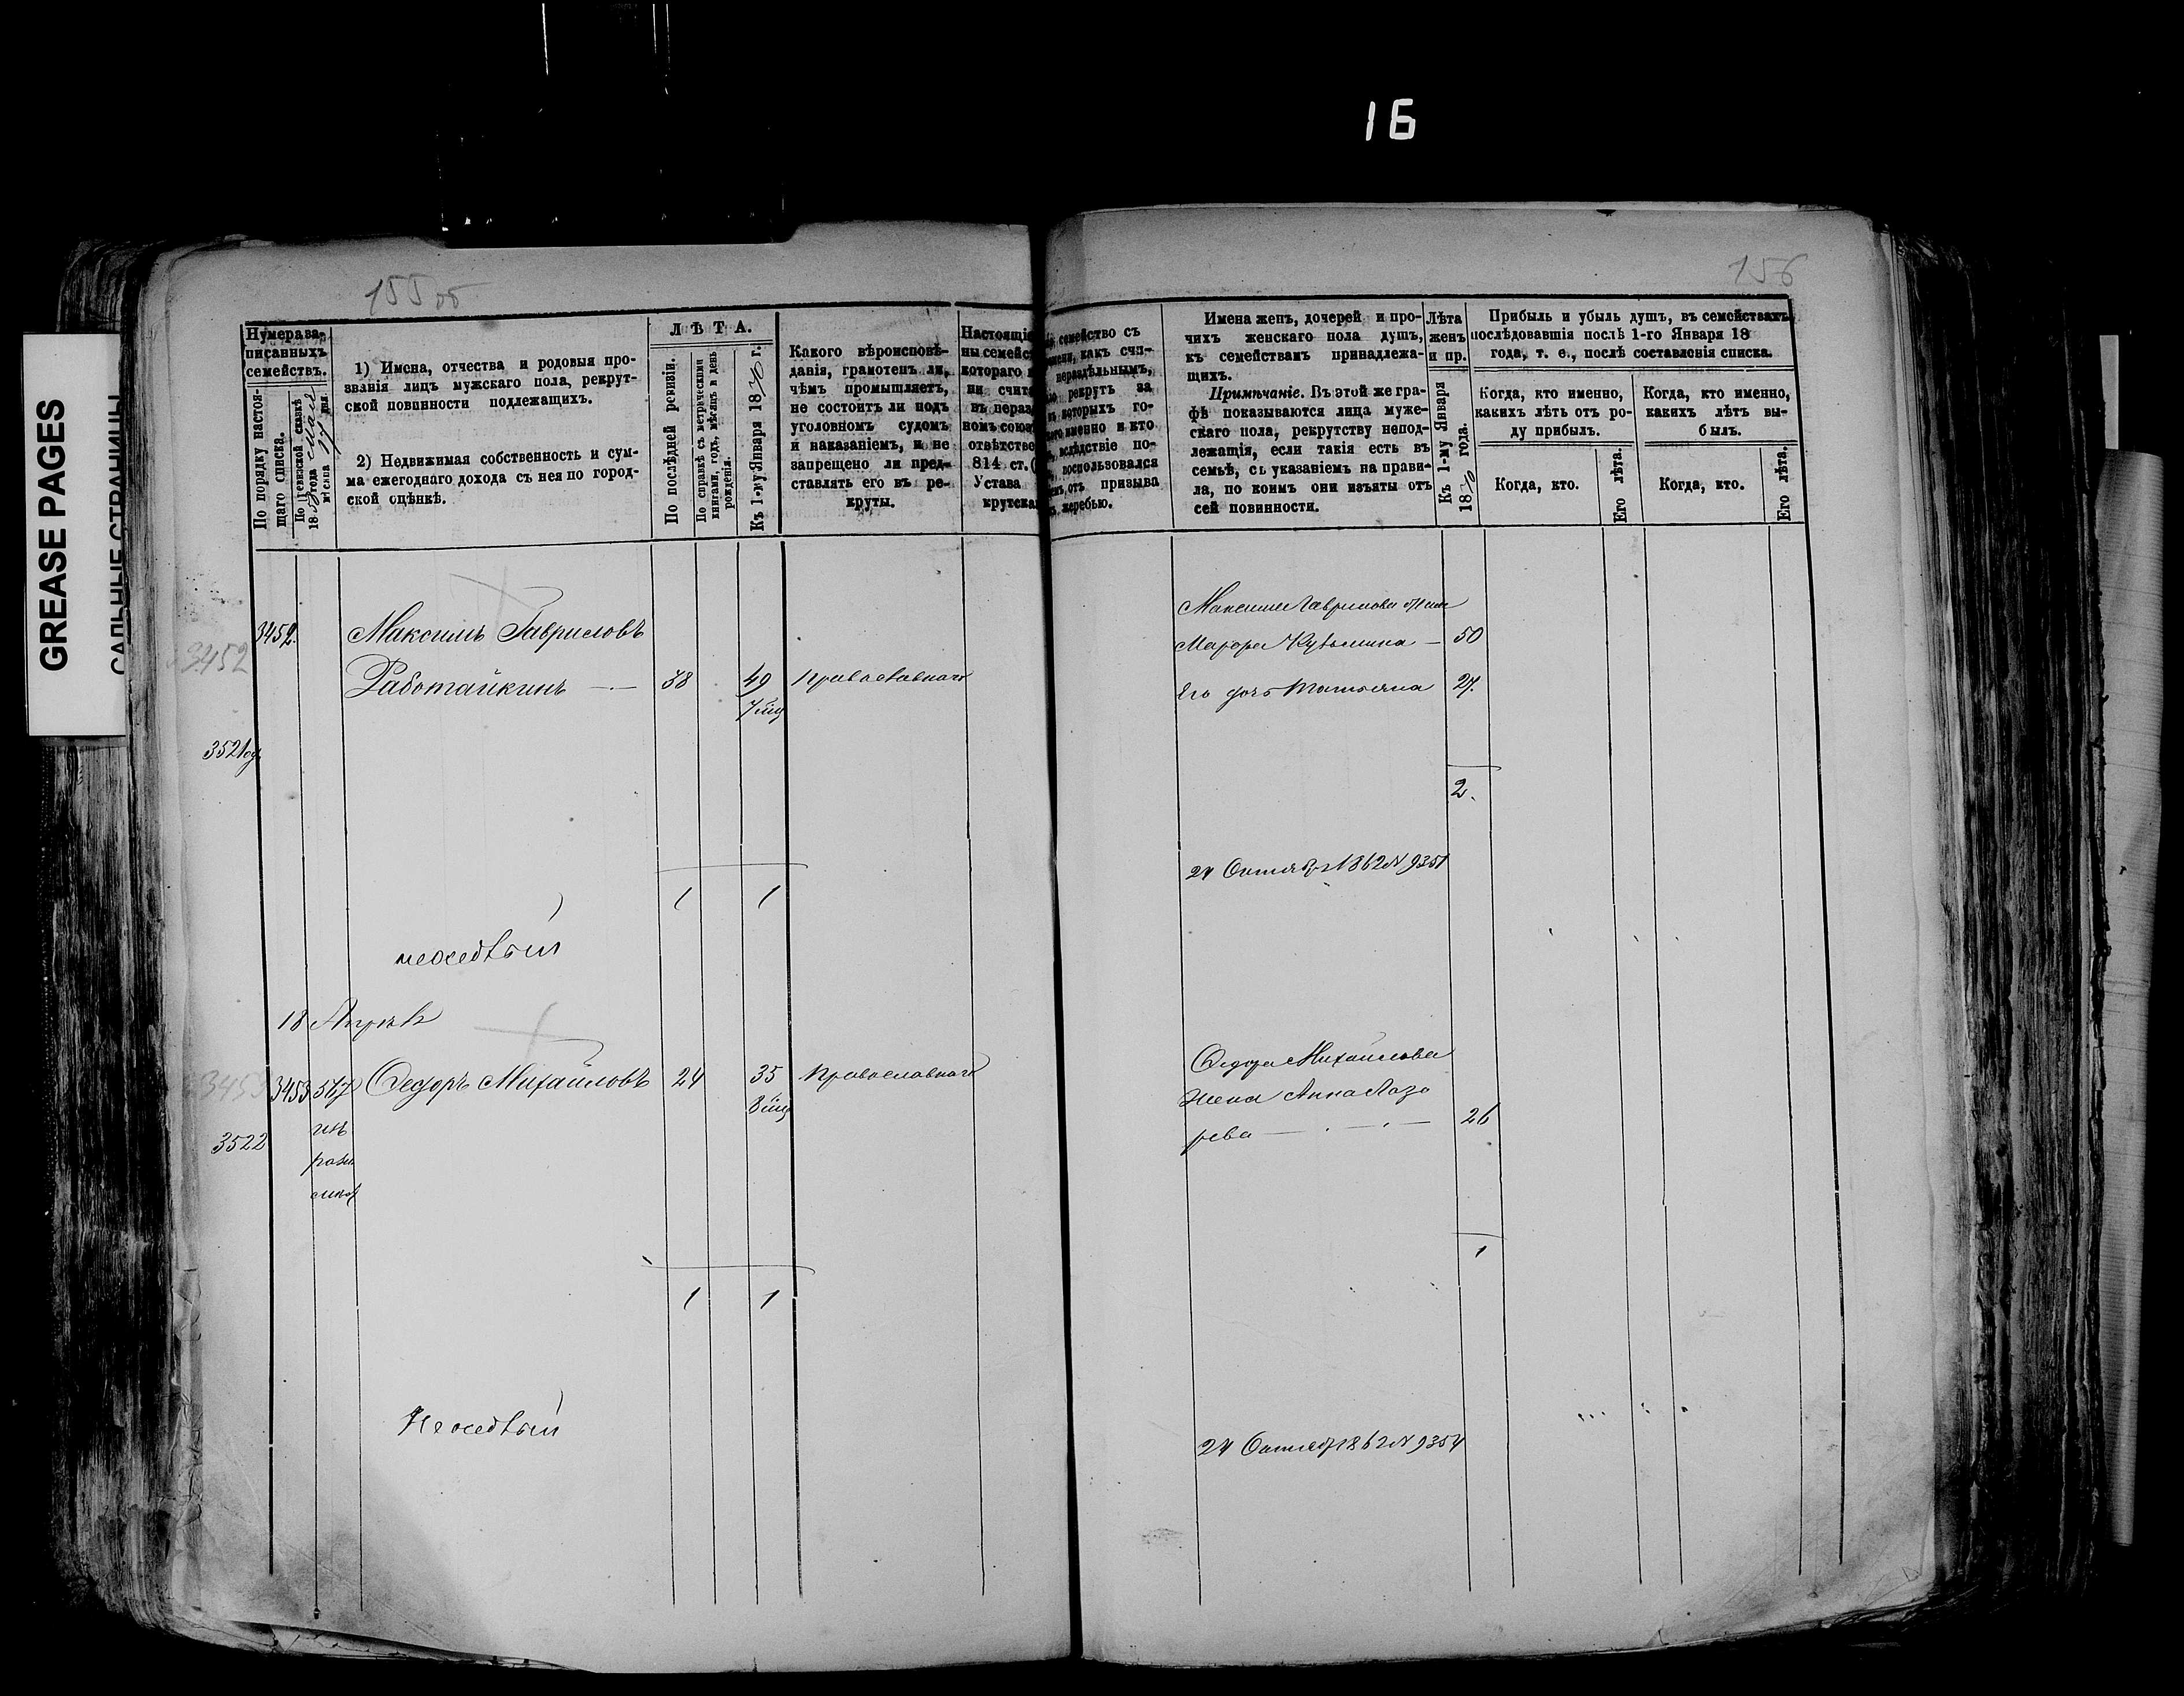 16
GREASE PAGES
САЛЬНЫЕ СТРАНИЦЫ
155 об
Нумера за-
писанныхъ
семействъ.
По порядку настоя-
щаго списка.
По ревизской сказкѣ
18 года
мѣсяца дня.
1) Имена, отчества и родовыя про-
званія лицъ мужскаго пола, рекрут-
ской повинности подлежащихъ.
2) Недвижимая собственность и сум-
ма ежегоднаго дохода съ нея по город-
ской оцѣнкѣ.
ЛѢТА.
По послѣдней ревизіи.
По справкѣ съ метрическими
книгами, годъ, мѣсяцъ и день
рожденія.
Къ 1-му Января 1870 г.
Какого вѣроисповѣ-
данія, грамотенъ ли,
чѣмъ промышляетъ,
не состоитъ ли подъ
уголовномъ судомъ
и наказаніемъ, и не
запрещено ли пред-
ставлять его въ ре-
круты.
Настоящі
ны семейс
котораго
ни счита
въ нераз
номъ союз
отвѣтстве
814 ст. (
Устава
крутска
3452.
3452
Максимъ Гавриловъ
Работайкинъ
38
49
7 мц
Православнаго
3521
1
1
неоседлый
18 Апрѣл
3453
3453
567
Федоръ Михайловъ
24
35
8 мц
Православнаго
3522
1
1
Неоседлый
156
семейство съ
какъ счи-
нераздѣльнымъ,
рекрутъ за
которыхъ го-
именно и кто
вслѣдствіе по-
воспользовался
отъ призыва
жеребью.
Имена женъ, дочерей и про-
чихъ женскаго пола душъ,
къ семействамъ принадлежа-
щихъ.
Примѣчаніе. Въ этой же гра-
фѣ показываются лица муже-
скаго пола, рекрутству непод-
лежащія, если такія есть въ
семьѣ, съ указаніемъ на прави-
ла, по коимъ они изъяты отъ
сей повинности.
Лѣта
женъ
и пр.
Къ 1-му Января
1870 года.
Прибыль и убыль душъ, въ семействахъ
послѣдовавшія послѣ 1-го Января 18
года, т. е., послѣ составленія списка.
Когда, кто именно,
какихъ лѣтъ отъ ро-
ду прибылъ.
Когда, кто.
Его лѣта.
Когда, кто именно,
какихъ лѣтъ вы-
былъ.
Когда, кто.
Его лѣта.
Максима Гаврилова жена
Марфа Кузьмина — 50
Его дочь Татьяна 27.
2.
24 Октября 1862 N 9351
Федора Михайлова
Жена Анна Лаза
рева 26
1
24 Октябр 1862 N 9354